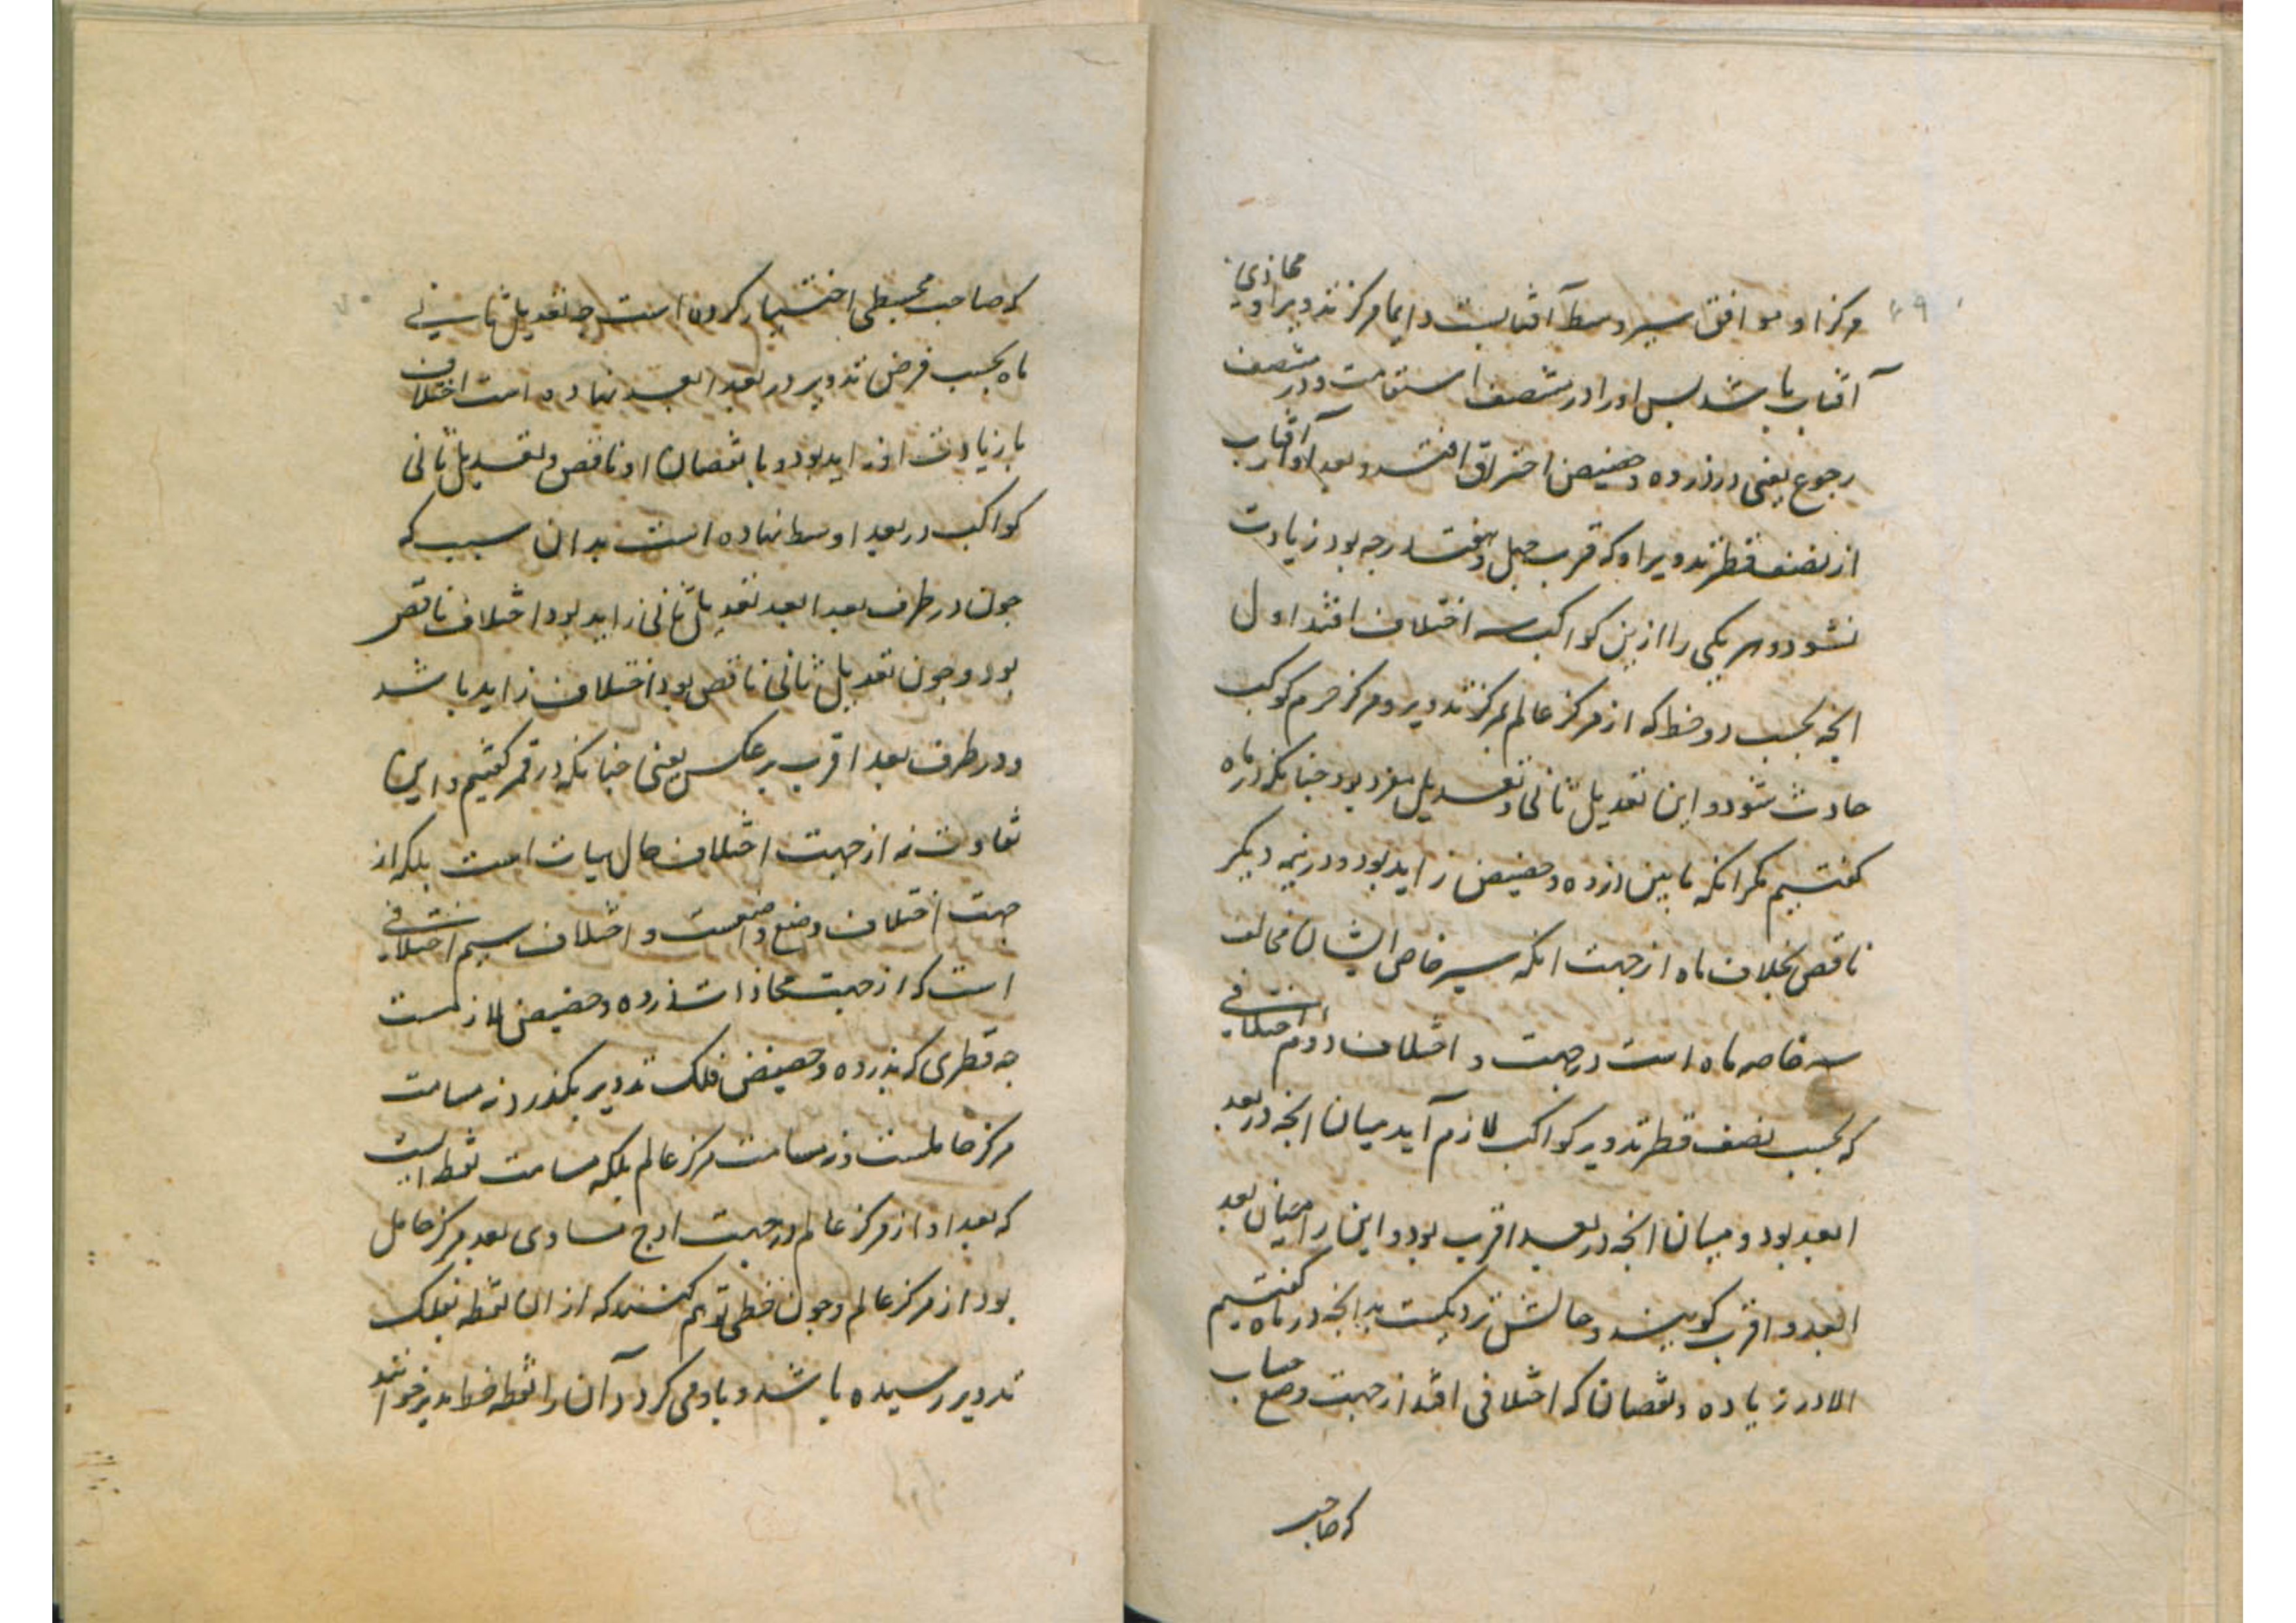 مرکز او موافق سیر وسط آفتابست دایما مرکز تدویر او محاذی
آفتاب باشد پس او را در منتصف استقامت و در منتصف
رجوع یعنی در ذروه و حضیض احتراق افتد و بعد او از آفتاب
از نصف قطر تدویر او که قرب چهل و هفت درجه بود زیادت
نشود و هر یکی را ازین کواکب سه اختلاف افتد اول
انچه بحسب دو خط که از مرکز عالم بمرکز تدویر و مرکز جرم کوکب
حادث شود و این تعدیل ثانی و تعدیل مفرد بود چنانکه در ماه
کفتیم مکر انکه مابین ذروه و حضیض زاید بود و در نیمه دیکر
ناقص بخلاف ماه از جهت انکه سیر خاصه ایشان مخالف
سیر خاصه ماه است در جهت و اختلاف دوم اختلافی
که بحسب نصف قطر تدویر کواکب لازم آید میان انچه در بعد
ابعد بود و میان انچه در بعد اقرب بود و این را میان بعد
ابعد و اقرب کویند و حالش نزدیکست بدانچه در ماه کفتیم
الا در زیاده و نقصان که اختلافی افتد از جهت وضع حساب
که صاحب
که صاحب مجسطی اختیار کرده است چه تعدیل ثانی
ماه بحسب فرض تدویر در بعد ابعد نهاده است اختلاف
با زیادت او زاید بود و با نقصان او ناقص و تعدیل ثانی
کواکب در بعد اوسط نهاده است بدان سبب که
چون در طرف بعد ابعد تعدیل ثانی زاید بود اختلاف ناقص
بود و چون تعدیل ثانی ناقص بود اختلاف زاید باشد
و در طرف بعد اقرب بر عکس یعنی چنانکه در قمر کفتیم و این
تفاوت نه از جهت اختلاف حال هیات است بلکه از
جهت اختلاف وضع واضعست و اختلاف سیم اختلافی
است که از جهت محاذات ذروه و حضیض لازمست
چه قطری که بذروه و حضیض فلک تدویر بکذرد نه مسامت
مرکز حاملست و نه مسامت مرکز عالم بلکه مسامت نقطه ایست
که بعد او از مرکز عالم در جهت اوج مساوی بعد مرکز حامل
بود از مرکز عالم و چون خطی توهم کنند که از ان نقطه بفلک
تدویر رسیده باشد و با او می کردد آن را نقطه خط مدیر خوانند